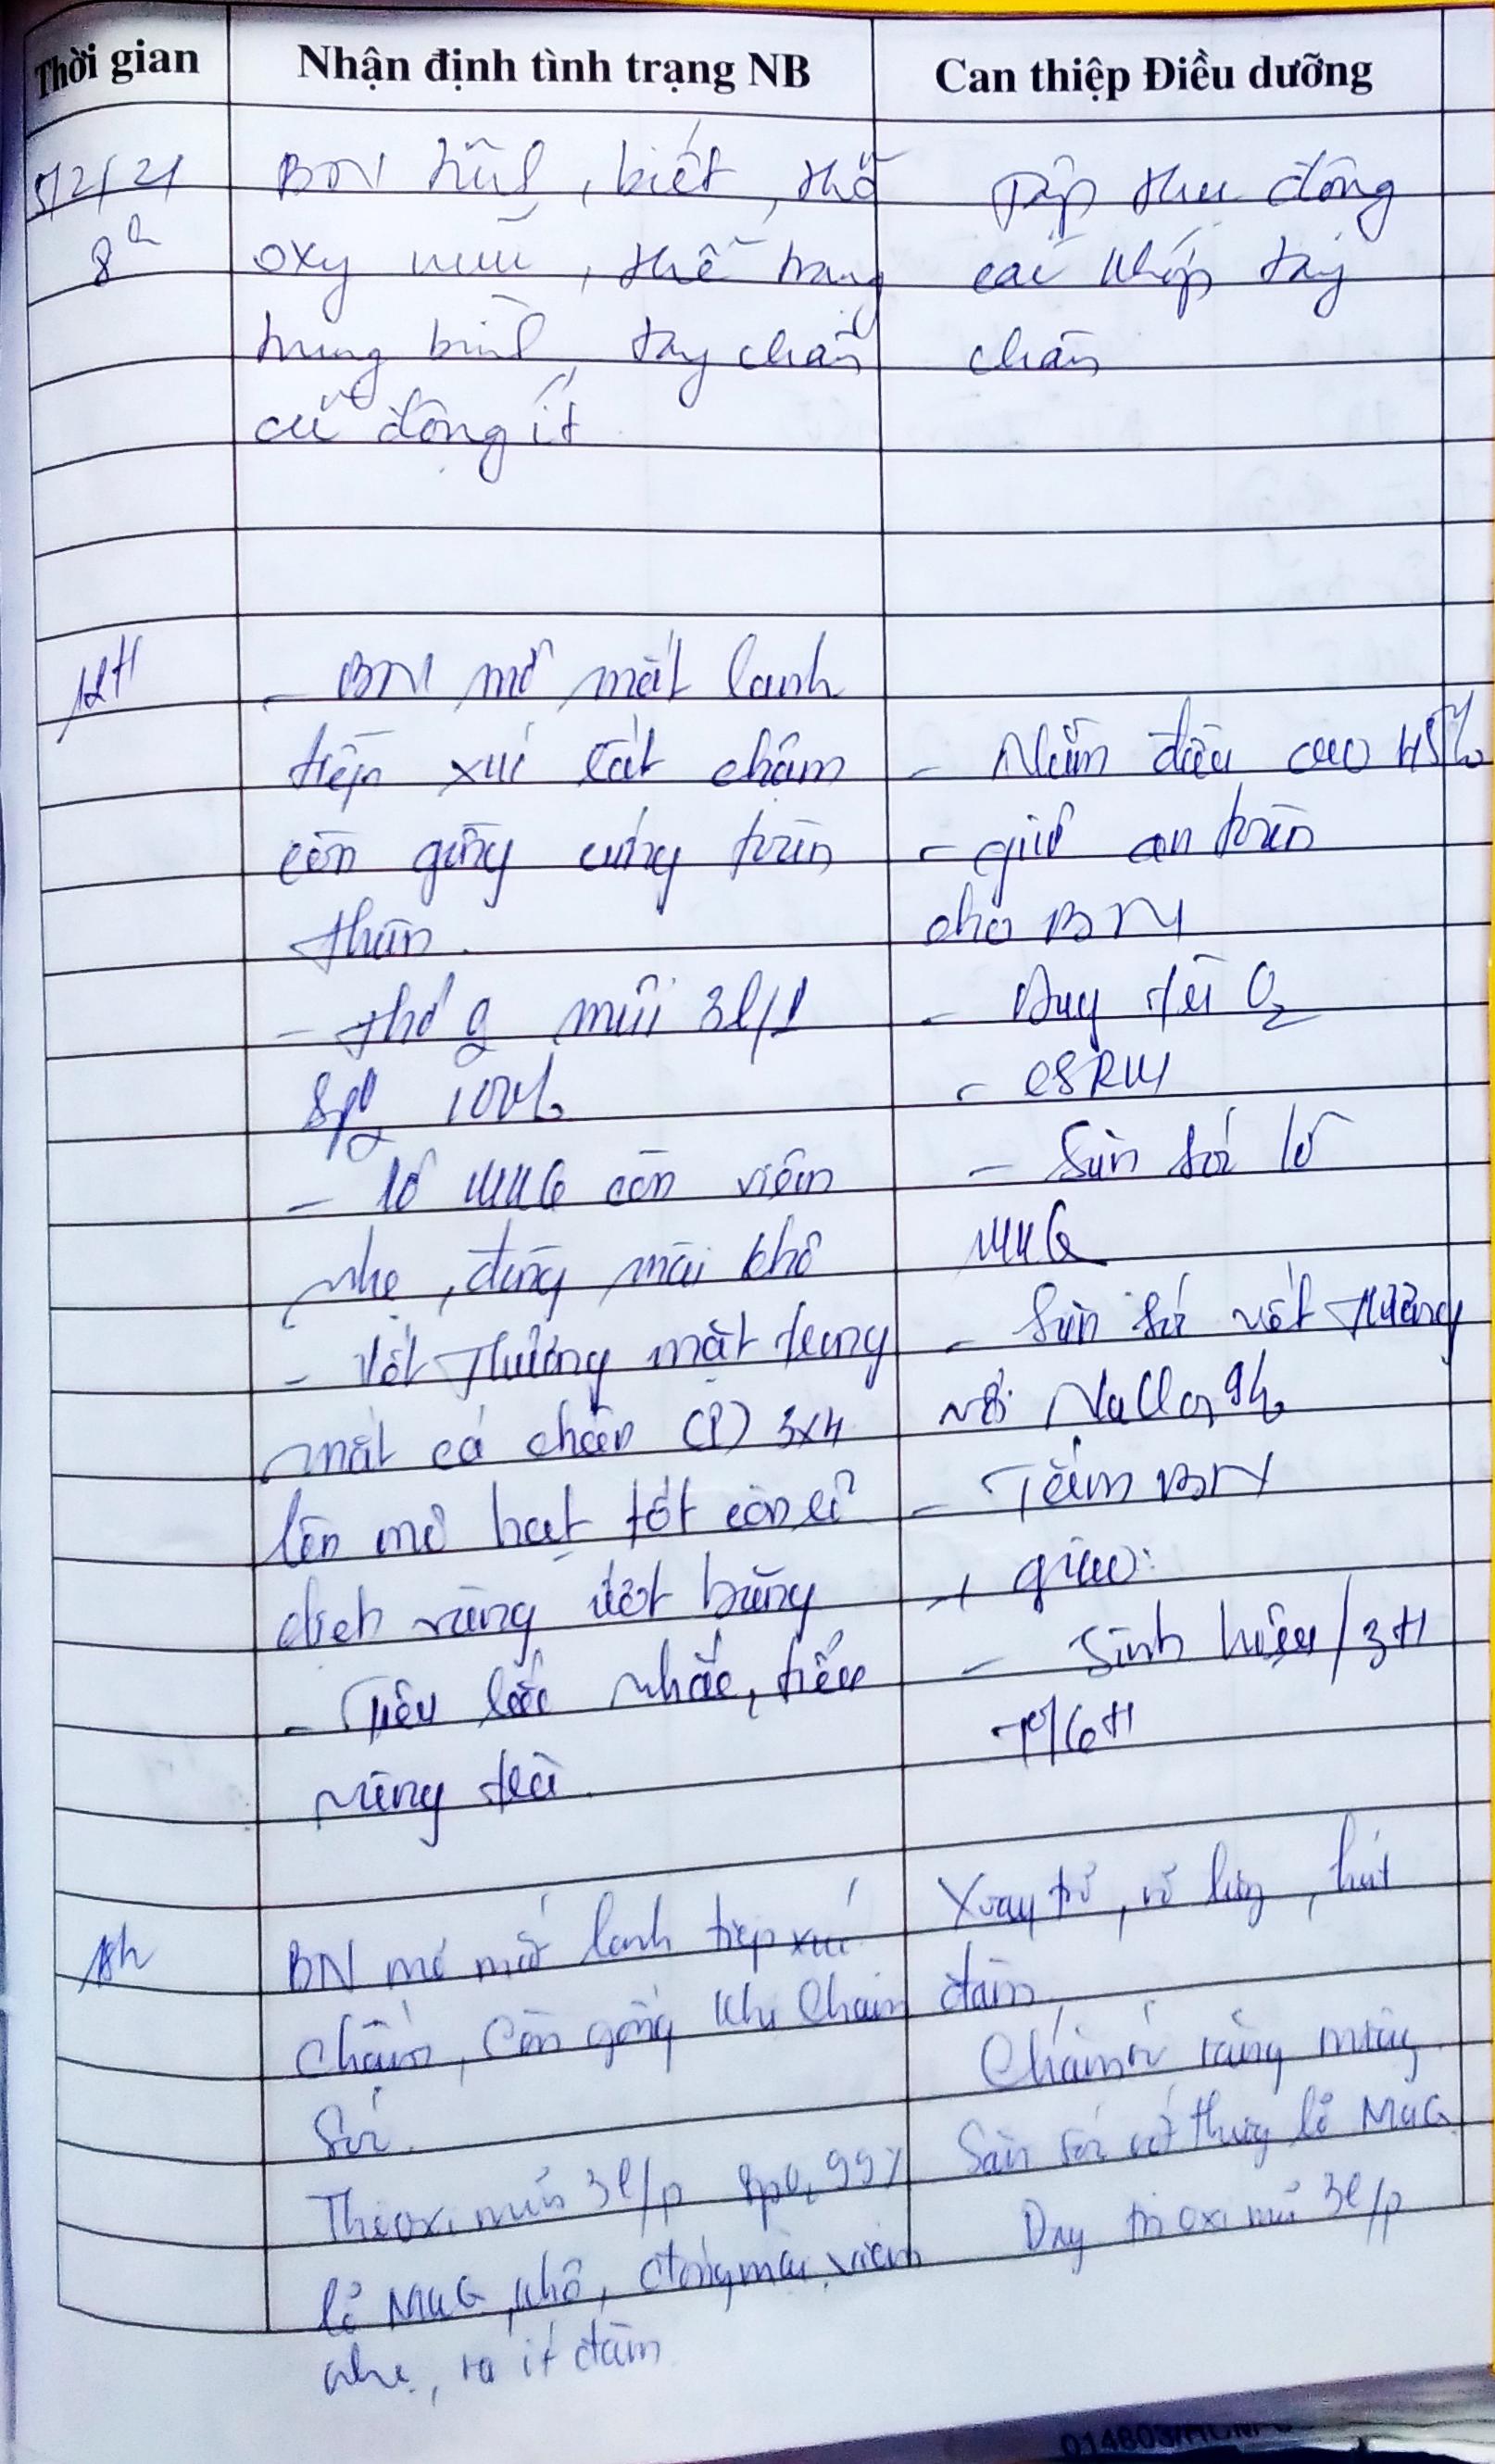 Thời gian
Nhận định tình trạng NB
Can thiệp Điều dưỡng
5/2/21
8h
BN tỉnh, biết, thở
oxy mũi, thể trạng
trung bình, tay chân
cử động ít
Tập thụ động
các khớp tay
chân
12H
- BN mở mắt lanh
tiếp xúc rất chậm
còn gồng cứng toàn
thân.
- thở O2 mũi 3l/p
SpO2 100%
- lỗ MKQ còn viêm
nhẹ, đóng mài khô
- Vết thương mặt trong
mắt cá chân (P) 3x4
lên mô hạt tốt còn rỉ
dịch vàng ướt băng
- Tiêu lắc nhắc, tiểu
vàng
- Nằm đầu cao 45%
- giữ an toàn
cho BN
- Duy trì O2
- CSRM
- Săn sóc lỗ
MKQ
- Săn sóc vết thương
với NaCl 0,9%
- Tắm BN
+ giao:
- Sinh hiệu/3H
To/6H
18h
BN mở mắt lanh tiếp xúc
chậm, còn gồng khi chăm
sóc.
Thở oxi mũi 3l/p SpO2 99%
lỗ MKQ khô, đóng mài, viêm
nhẹ, ra ít đàm
Xoay trở, vỗ lưng, hút
đàm
Chăm sóc răng miệng
Săn sóc vết thương lỗ MKQ
Duy trì oxi mũi 3l/p